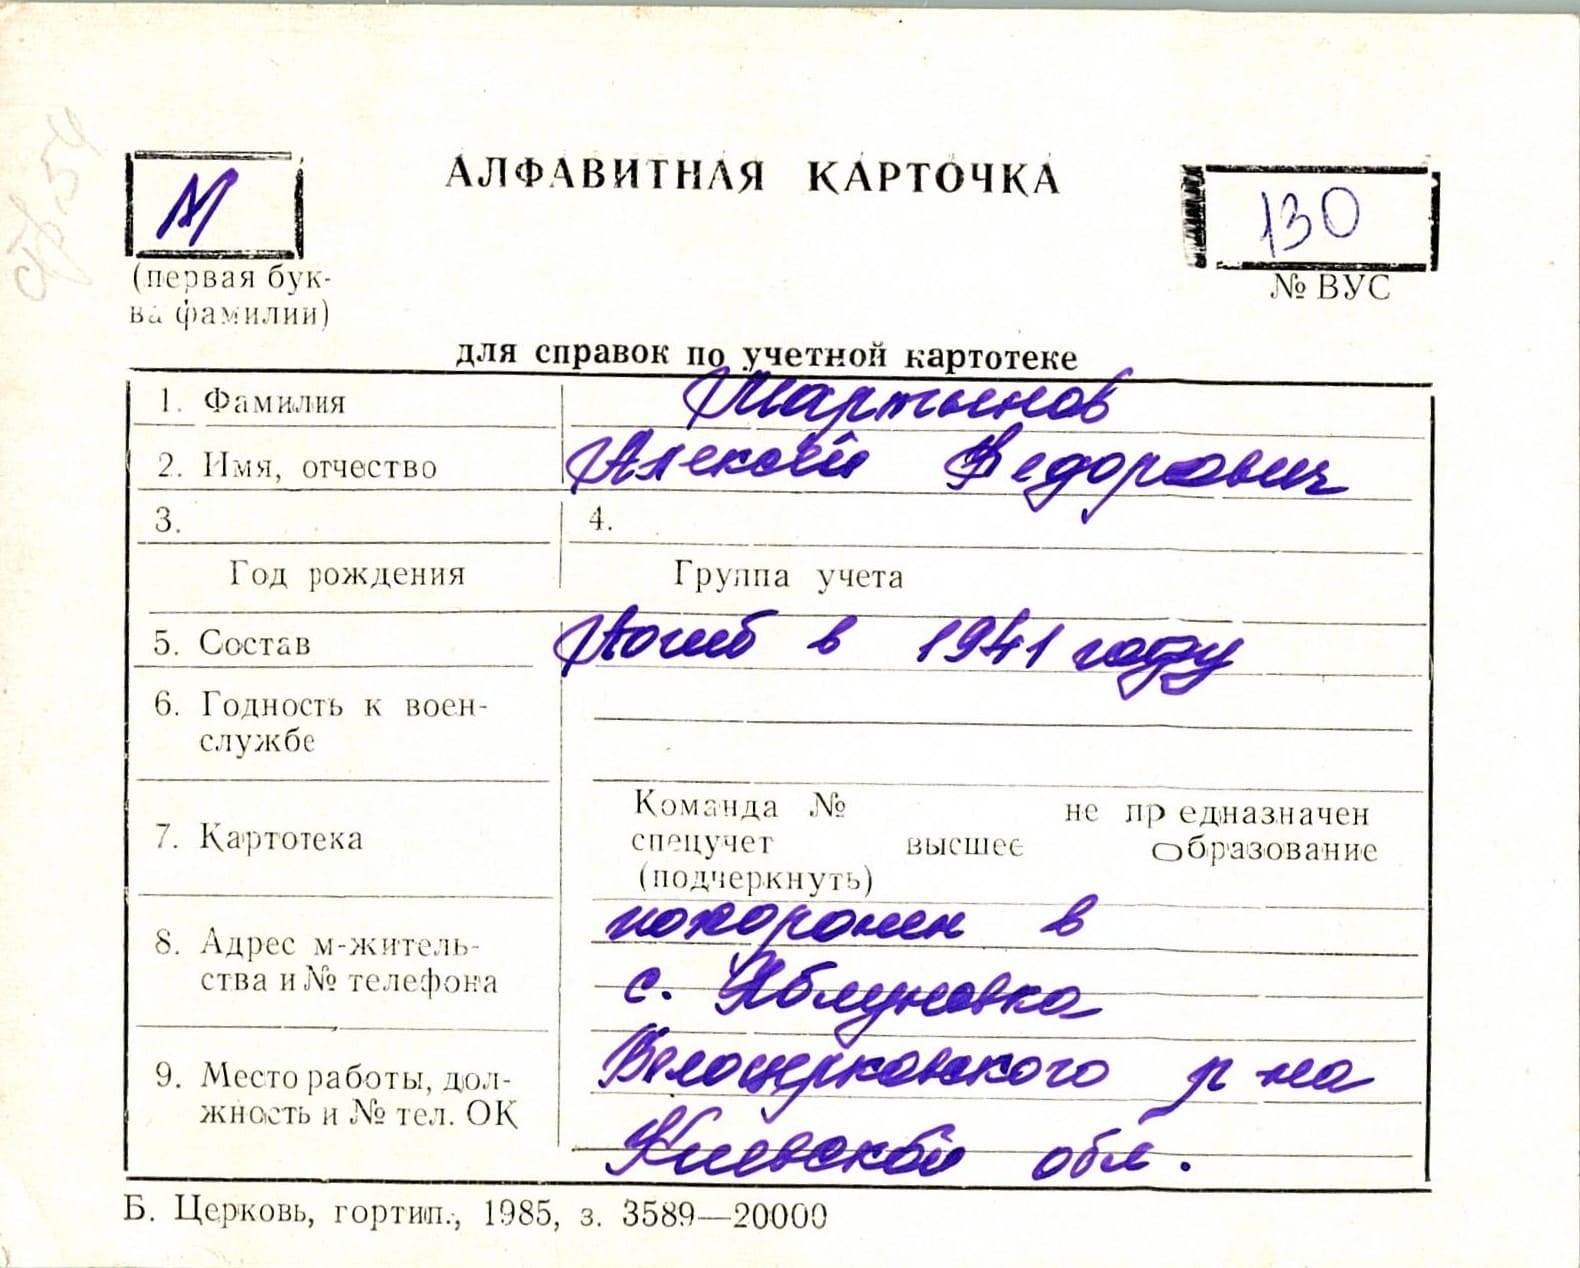 АЛФАВИТНАЯ КАРТОЧКА
М
130
(первая бук-
ва фамилии)
№ ВУС
для справок по учетной картотеке
1. Фамилия Мартынов
2. Имя, отчество Алексей Федорович
3. 4.
Год рождения Группа учета
5. Состав Погиб в 1941 году
6. Годность к воен-
службе
Команда № не предназначен
7. Картотека спецучет высшее образование
(подчеркнуть)
похоронен в
8. Адрес м-житель-
ства и № телефона с. Яблуновка
9. Место работы, дол- Белоцерковского р-на
жность и № тел. ОК Киевской обл.
Б. Церковь, гортип., 1985, з. 3589—20000